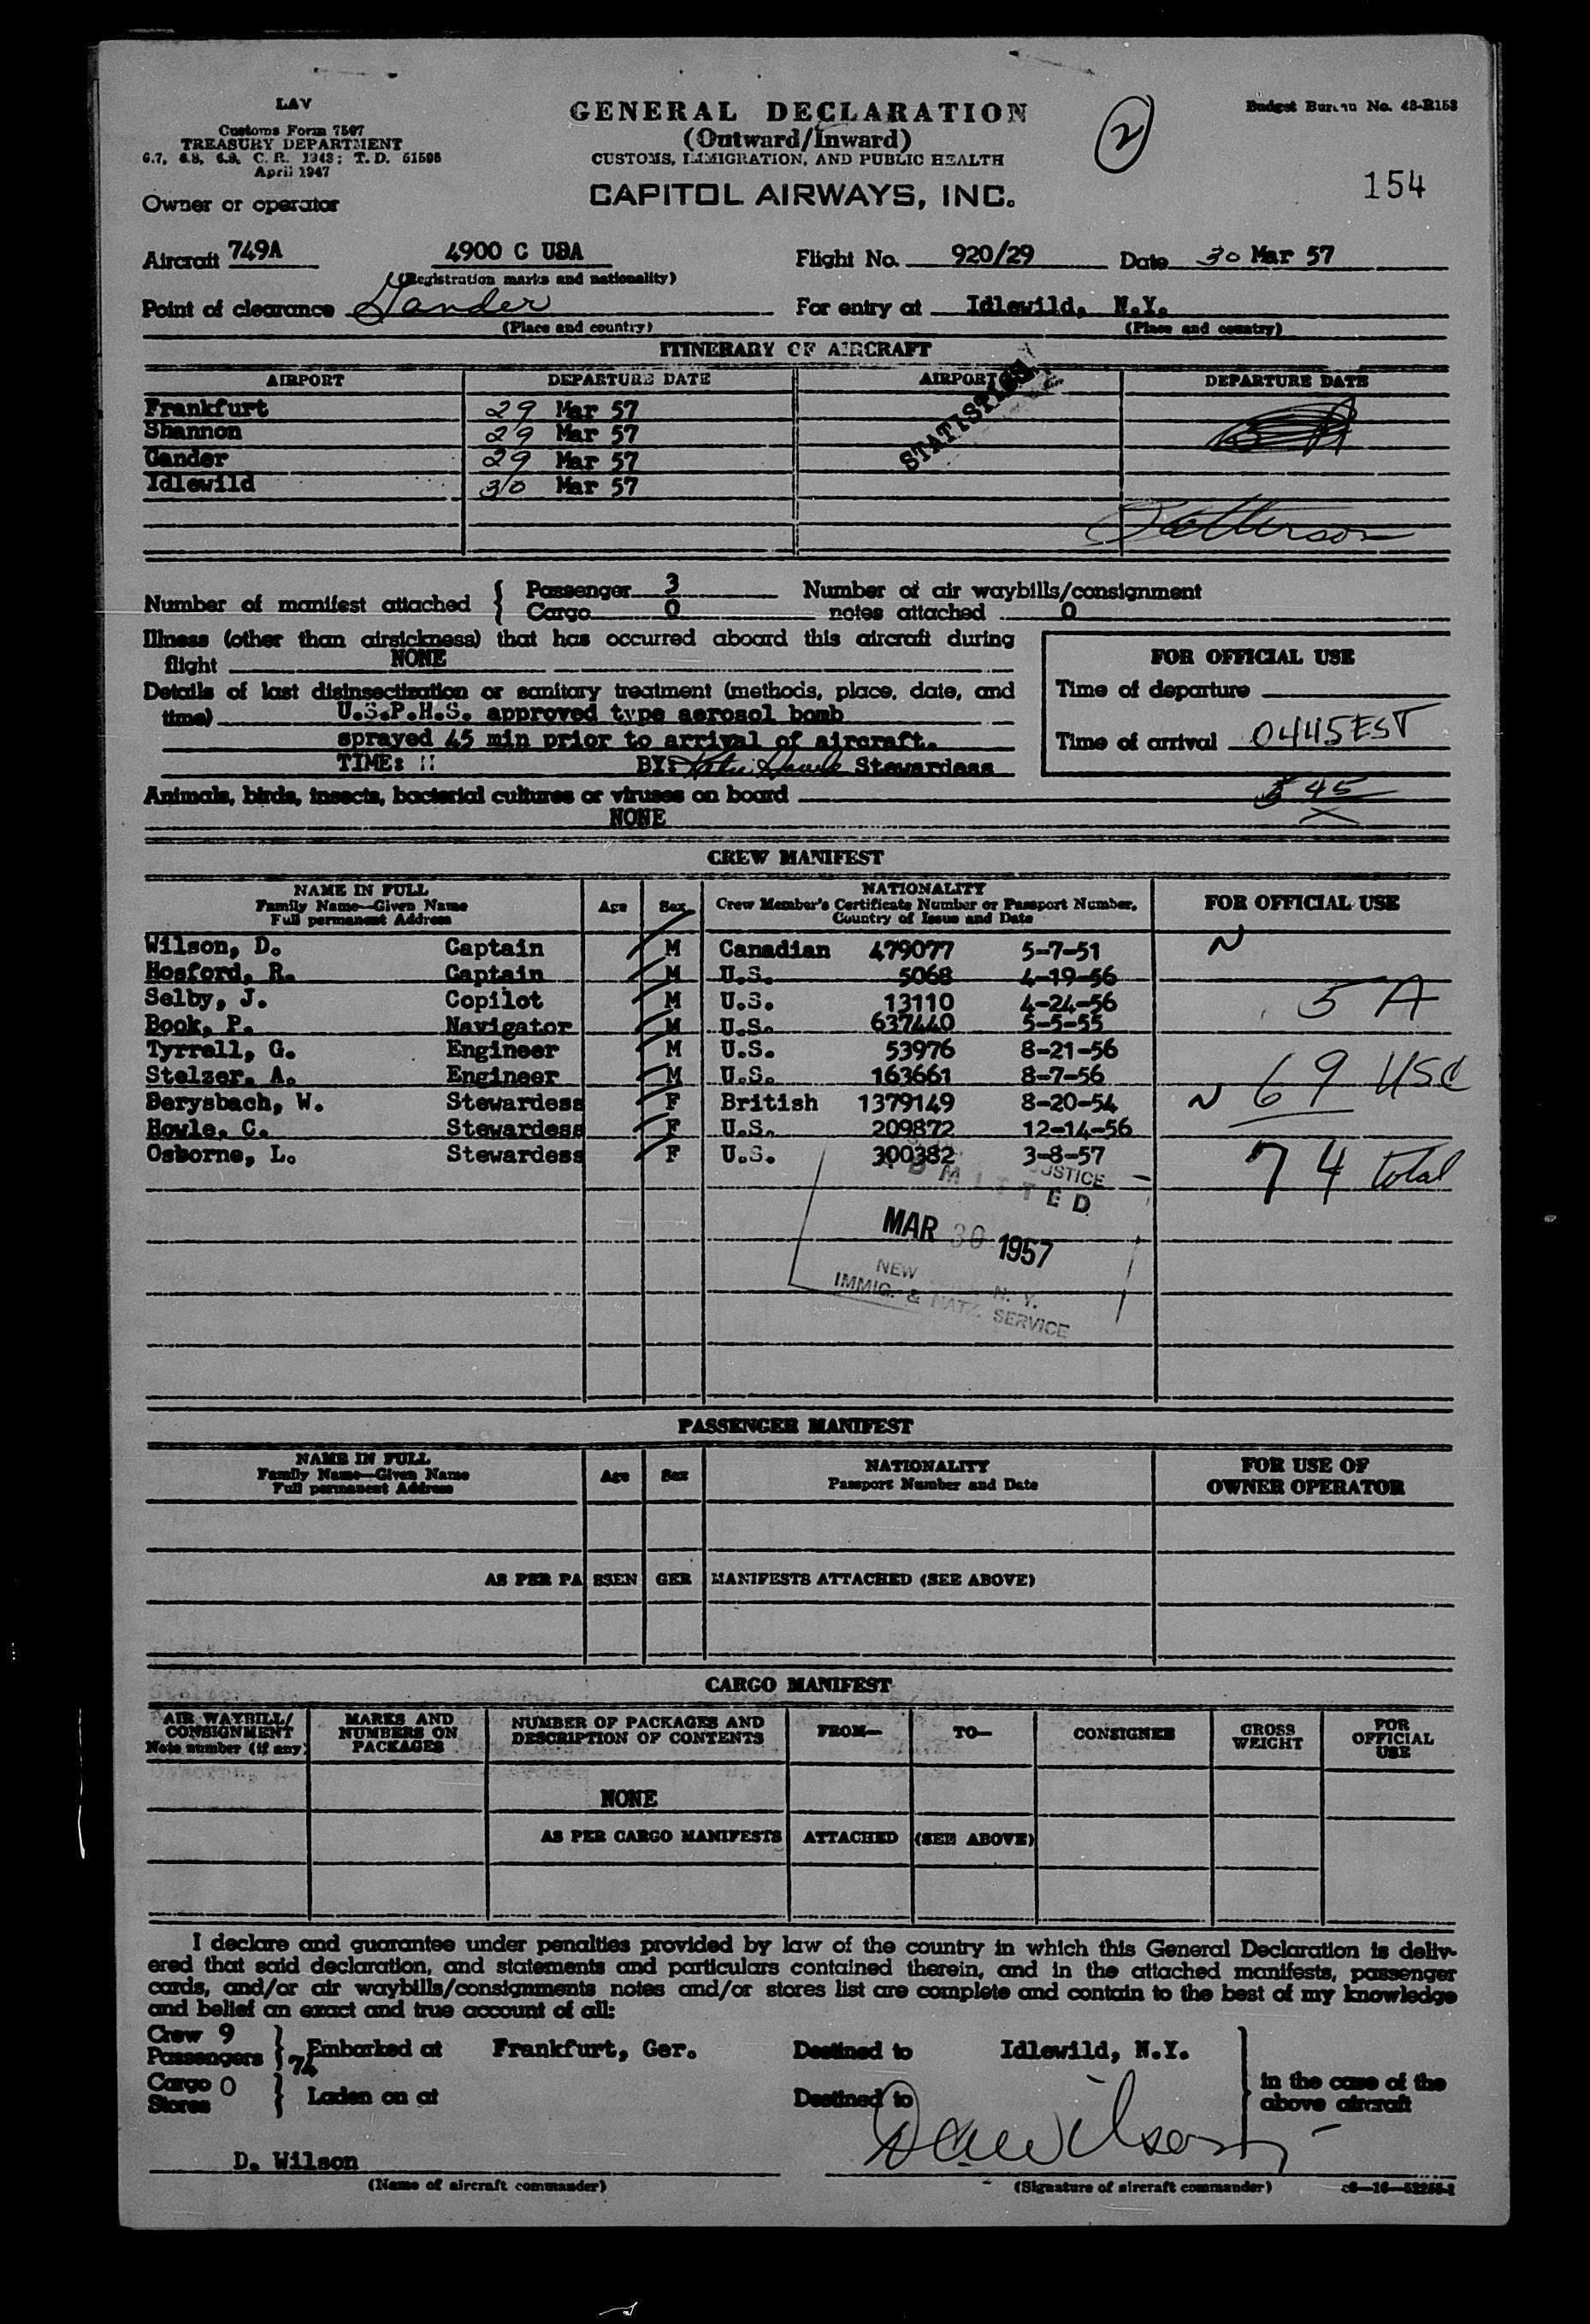 LAV
Customs Form 7507
TREASURY DEPARTMENT
6.7, 6.8, 6.9, C. R. 1943; T. D. 51595
April 1947
GENERAL DECLARATION
(Outward/Inward)
CUSTOMS, IMMIGRATION, AND PUBLIC HEALTH
CAPITOL AIRWAYS, INC.
2
Budget Bureau No. 43-R153
154
Owner or operator
Aircraft 749A 4900 C USA Flight No. 920/29 Date 30 Mar 57
(Registration marks and nationality)
Point of clearance Gander For entry at Idlewild, N.Y.
(Place and country) (Place and country)
ITINERARY OF AIRCRAFT
AIRPORT DEPARTURE DATE AIRPORT DEPARTURE DATE
Frankfurt 29 Mar 57
Shannon 29 Mar 57
Gander 29 Mar 57
Idlewild 30 Mar 57
Patterson
Number of manifest attached { Passenger 3 Number of air waybills/consignment
Cargo 0 notes attached 0
Illness (other than airsickness) that has occurred aboard this aircraft during
flight NONE
Details of last disinsectization or sanitary treatment (methods, place, date, and
time) U.S.P.H.S. approved type aerosol bomb
sprayed 45 min prior to arrival of aircraft.
TIME: BY: Stewardess
FOR OFFICIAL USE
Time of departure
Time of arrival 0445 EST
Animals, birds, insects, bacterial cultures or viruses on board
NONE
CREW MANIFEST
NAME IN FULL
Family Name—Given Name
Full permanent Address
Age Sex
NATIONALITY
Crew Member's Certificate Number or Passport Number,
Country of Issue and Date
FOR OFFICIAL USE
Wilson, D. Captain M Canadian 479077 5-7-51
Hosford, R. Captain M U.S. 5068 4-19-56
Selby, J. Copilot M U.S. 13110 4-24-56 5 A
Book, P. Navigator M U.S. 637440 5-5-55
Tyrrell, G. Engineer M U.S. 53976 8-21-56
Stelzer, A. Engineer M U.S. 163661 8-7-56 69 USC
Derysbach, W. Stewardess F British 1379149 8-20-54
Howle, C. Stewardess F U.S. 209872 12-14-56
Osborne, L. Stewardess F U.S. 300382 3-8-57 74 total
JUSTICE
MAR 30 1957
NEW N. Y.
IMMIG. & NATZ. SERVICE
PASSENGER MANIFEST
NAME IN FULL
Family Name—Given Name
Full permanent Address
Age Sex
NATIONALITY
Passport Number and Date
FOR USE OF
OWNER OPERATOR
AS PER PASSENGER MANIFESTS ATTACHED (SEE ABOVE)
CARGO MANIFEST
AIR WAYBILL/
CONSIGNMENT
Note number (if any)
MARKS AND
NUMBERS ON
PACKAGES
NUMBER OF PACKAGES AND
DESCRIPTION OF CONTENTS
FROM— TO— CONSIGNEE
GROSS
WEIGHT
FOR
OFFICIAL
USE
NONE
AS PER CARGO MANIFESTS ATTACHED (SEE ABOVE)
I declare and guarantee under penalties provided by law of the country in which this General Declaration is deliv-
ered that said declaration, and statements and particulars contained therein, and in the attached manifests, passenger
cards, and/or air waybills/consignments notes and/or stores list are complete and contain to the best of my knowledge
and belief an exact and true account of all:
Crew 9
Passengers 74 } Embarked at Frankfurt, Ger. Destined to Idlewild, N.Y.
Cargo 0
Stores } Laden on at Destined to
in the case of the
above aircraft
D. Wilson
(Name of aircraft commander) (Signature of aircraft commander)